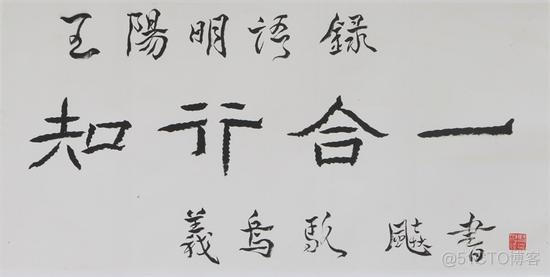 王陽明語錄
知行合一
義烏 飈書
@51CTO博客